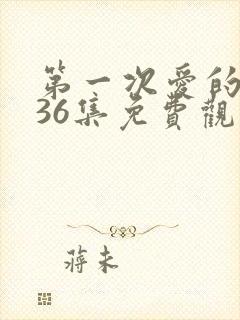 第一次愛的
36集免費觀
蔣未